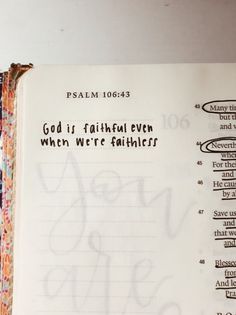 PSALM 106:43
God is faithful even
when we're faithless
106
You
are
43 Many tim
but th
and v
44 Neverth
whe
45 For the
and
46 He cau
by a
47 Save us
and
that we
and
48 Blessed
from
And le
Pra